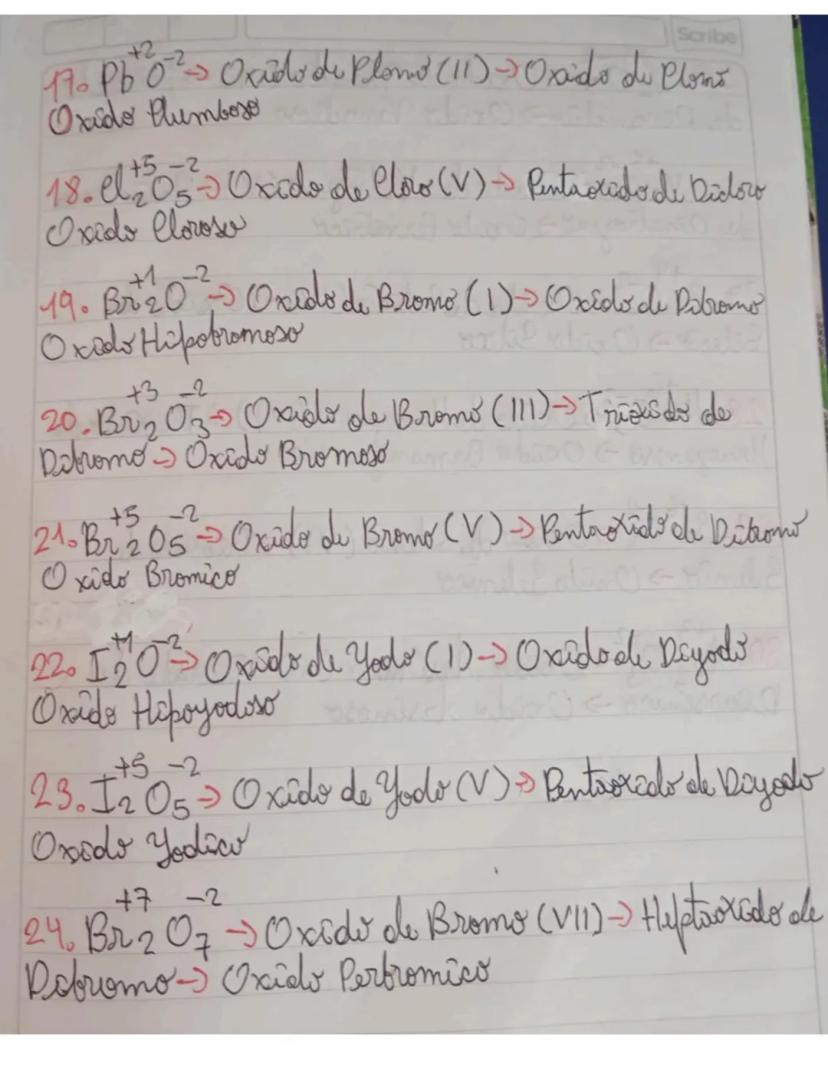 Scribe
17. Pb⁺² O⁻² → Oxido de Plomo (II) → Oxido de Plomo
Oxido Plumboso
18. Cl₂⁺⁵ O₅⁻² → Oxido de Cloro (V) → Pentaoxido de Dicloro
Oxido Cloroso
19. Br₂⁺¹ O⁻² → Oxido de Bromo (I) → Oxido de Dibromo
Oxido Hipobromoso
20. Br₂⁺³ O₃⁻² → Oxido de Bromo (III) → Trioxido de
Dibromo → Oxido Bromoso
21. Br₂⁺⁵ O₅⁻² → Oxido de Bromo (V) → Pentaoxido de Dibromo
Oxido Bromico
22. I₂⁺¹ O⁻² → Oxido de Yodo (I) → Oxido de Diyodo
Oxido Hipoyodoso
23. I₂⁺⁵ O₅⁻² → Oxido de Yodo (V) → Pentaoxido de Diyodo
Oxido Yodico
24. Br₂⁺⁷ O₇⁻² → Oxido de Bromo (VII) → Heptaoxido de
Dibromo → Oxido Perbromico